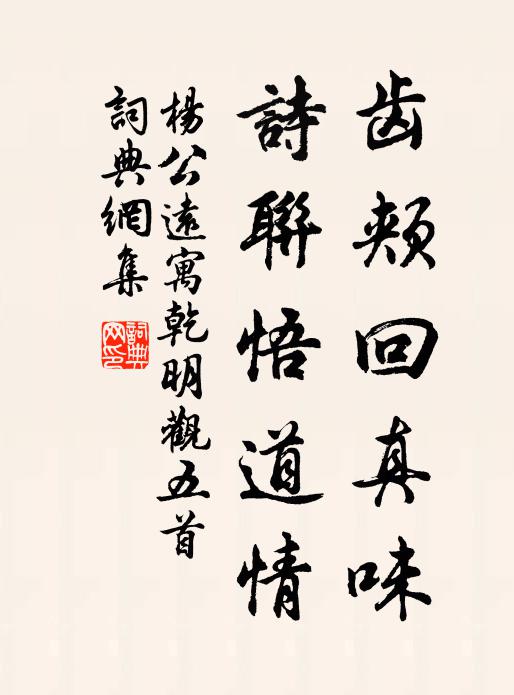 齿頰回真味
詩聯悟道情
楊公遠寓乾明觀五首
詞典網集
詞典网印